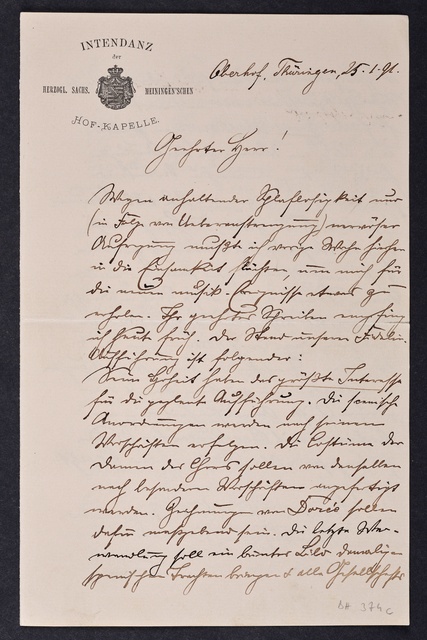 INTENDANZ
der
HERZOGL. SACHS. MEININGEN'SCHEN
HOF-KAPELLE.
Oberhof, Thüringen, 25.1.91.
Geehrter Herr!
Wegen anhaltender Schlaflosigkeit und
(in Folge von Ueberanstrengung) nervöser
Aufregung mußte ich vorige Woche hieher
in die Einsamkeit flüchten, um mich für
die neuen musik. Ereignisse etwas zu
erholen. Ihr geehrtes Schreiben empfing
ich heute früh. Der Stand unserer Fidelio
Aufführung ist folgender:
Seine Hoheit haben das größte Interesse
für die geplante Aufführung. Die scenischen
Anordnungen werden nach seinen
Vorschriften erfolgen. Die Costüme der
Damen des Chors sollen von denselben
nach besonderen Vorschriften angefertigt
werden. Zeichnungen von Doré sollen
dafür maßgebend sein. Die letzte Ver-
wandlung soll ein buntes Bild damaliger
spanischer Trachten bringen & alle Gesellschafts
BH 374c